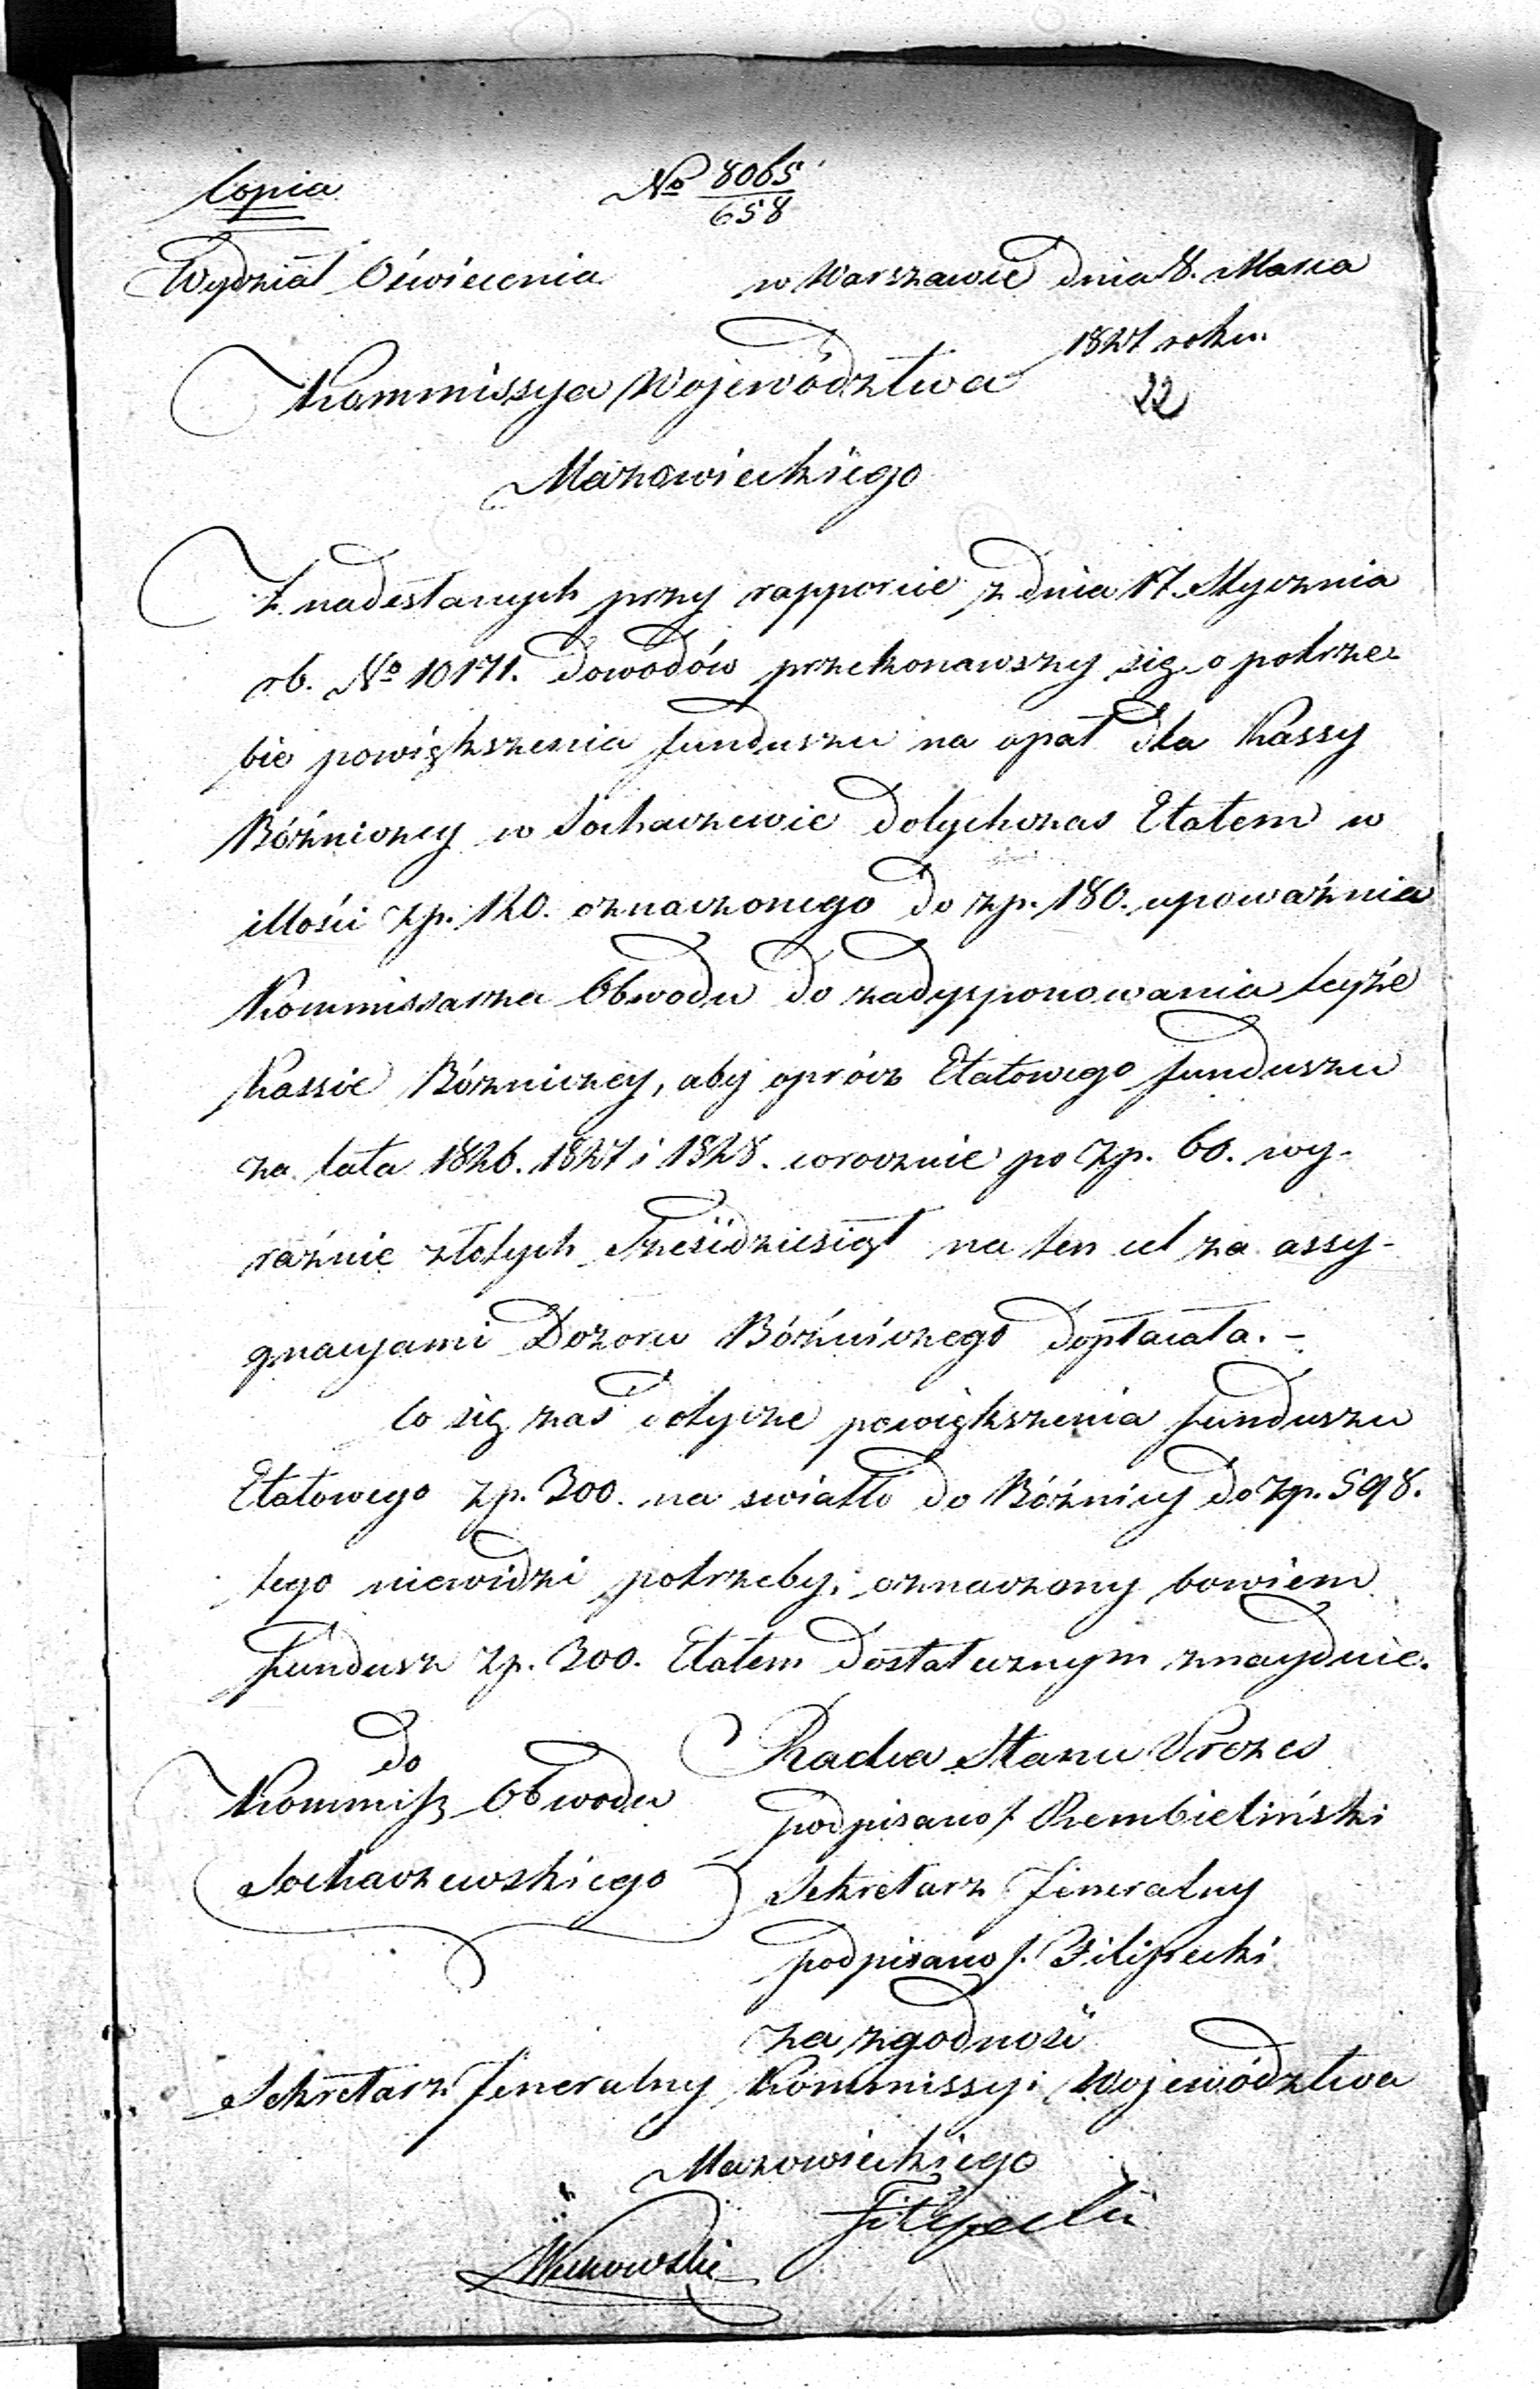 Copia
№ 8065/658
Wydział Oświecenia w Warszawie dnia 8. Marca
1827 roku.
Kommissya Województwa
22
Mazowieckiego
Z nadesłanych przy rapporcie z dnia 17. Stycznia
rb. № 10171. dowodów przekonawszy się o potrze-
bie powiększenia funduszu na opał dla Kassy
Bóźniczey w Sochaczewie dotychczas Etatem w
illości zp. 120. oznaczonego do zp. 180. upoważnia
Kommissarza Obwodu do zadysponowania teyże
Kassie Bózniczey, aby oprócz Etatowego funduszu
za lata 1826. 1827 i 1828. corocznie po zp. 60. wy-
raźnie złotych Sześćdziesiąt na ten cel za assy-
gnacyami Dozoru Bóźniczego dopłacała. -
Co się zaś dotycze powiększenia funduszu
Etatowego zp. 300. na swiatło do Bóżnicy do zp. 598.
tego niewidzi potrzeby, oznaczony bowiem
fundusz zp. 300. Etatem dostatecznym znayduie.
Do
Kommissz Obwodu
Sochaczewskiego
Radca Stanu Prezes
podpisano /. Rembieliński
Sekretarz Jeneralny
podpisano /. Filipecki
za zgodność
Sekretarz Jeneralny Kommissyi Województwa
Mazowieckiego
Filipecki